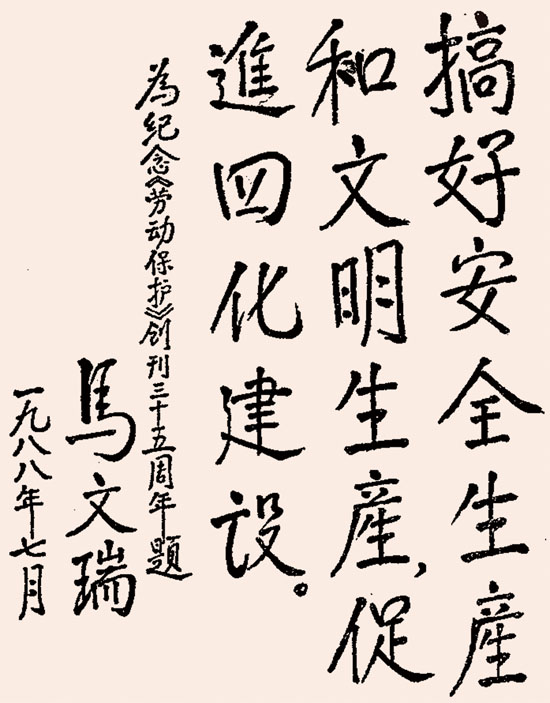 搞好安全生産
和文明生産，促
進四化建设。
为紀念《劳动保护》创刊三十五周年題
馬文瑞
一九八八年七月